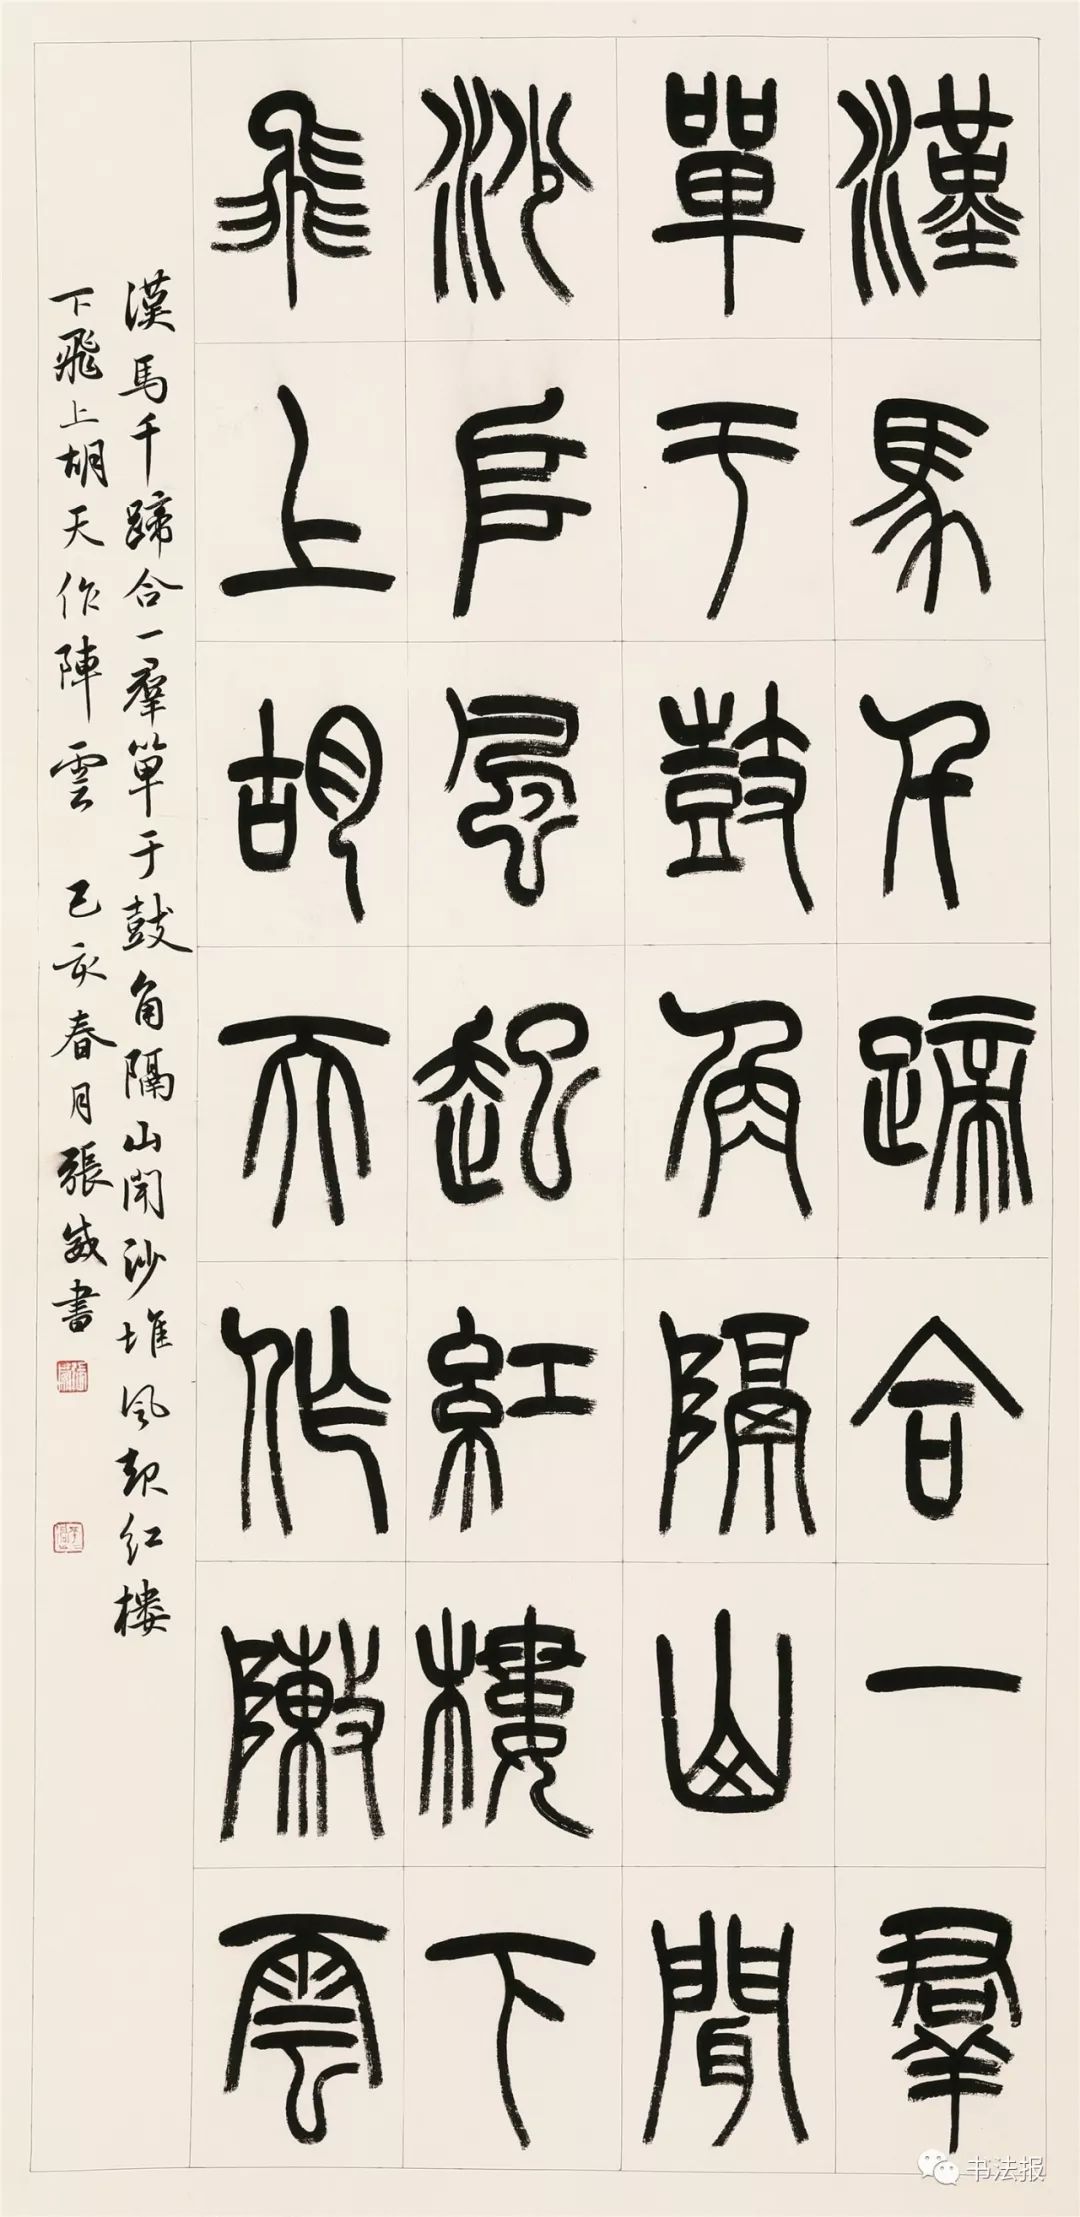 漢馬千蹄合一羣
單于鼓角隔山聞
沙𠂤風起紅樓下
飛上胡天作陳雲
漢馬千蹄合一羣單于鼓角隔山聞沙堆風起紅樓
下飛上胡天作陣雲 己亥春月張威書
书法报